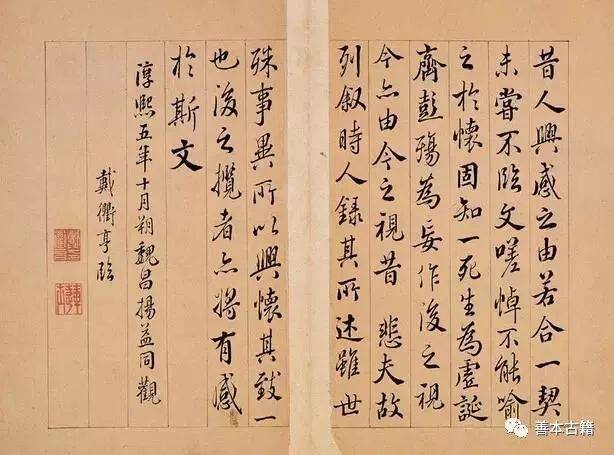 昔人興感之由若合一契
未嘗不臨文嗟悼不能喻
之於懷固知一死生為虛誕
齊彭殤為妄作後之視
今亦由今之視昔 悲夫故
列叙時人錄其所述雖世
殊事異所以興懷其致一
也後之攬者亦將有感
於斯文
淳熙五年十月朔魏昌揚益同觀
戴衢亨臨
善本古籍